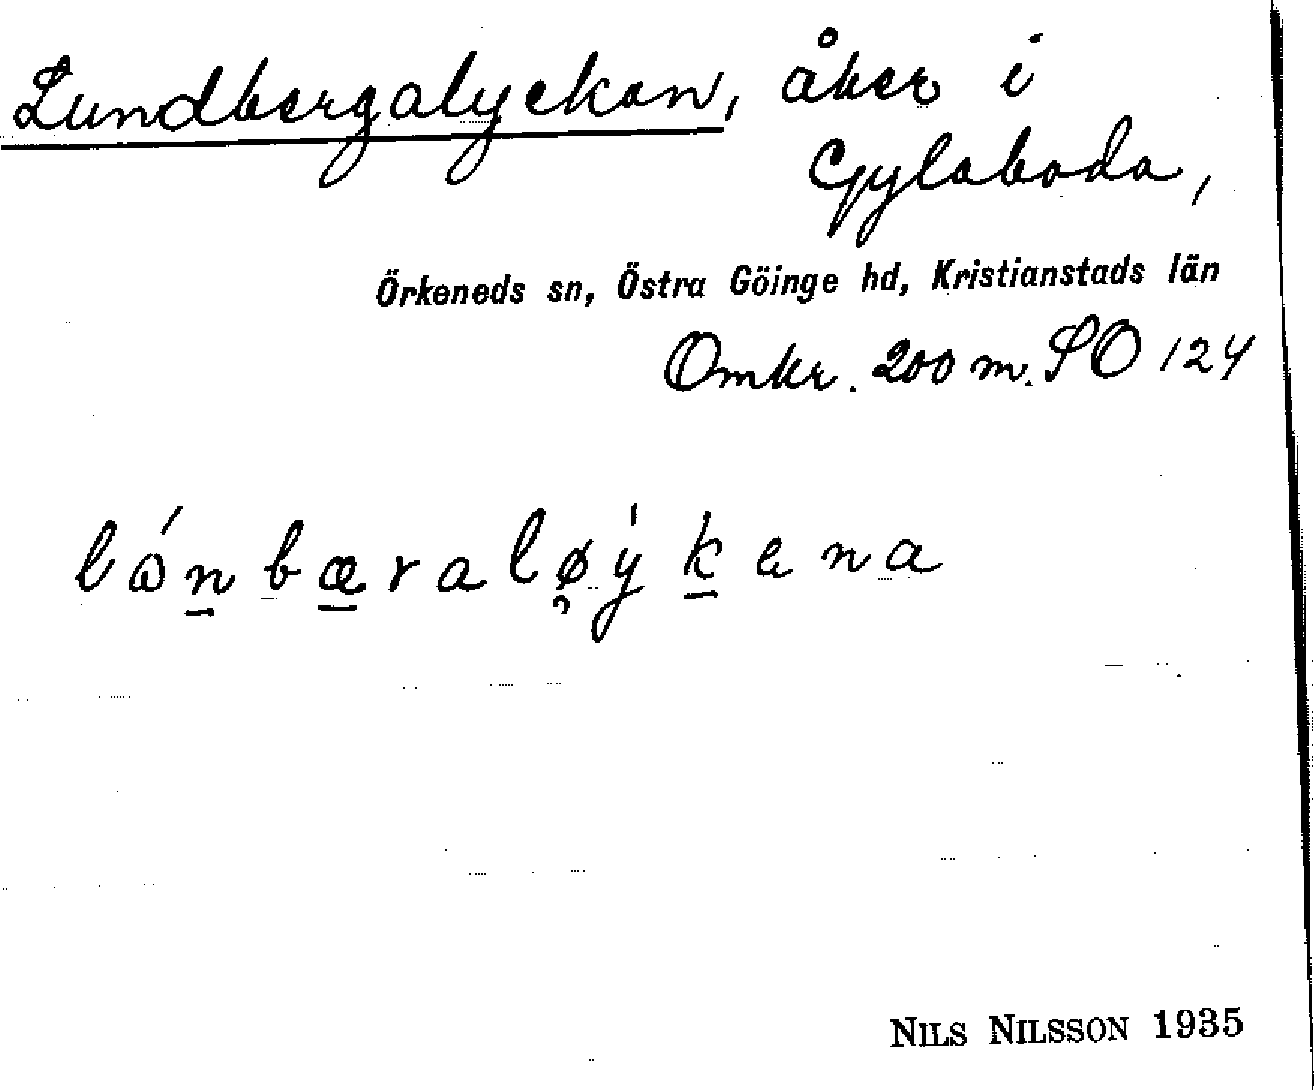 Lundbergalyckan, åker i
Gylaboda,
Örkeneds sn, Östra Göinge hd, Kristianstads län
Omkr. 200 m. SO 124
lón̲bæ̲ralø̨ýk̲ena
NILS NILSSON 1935